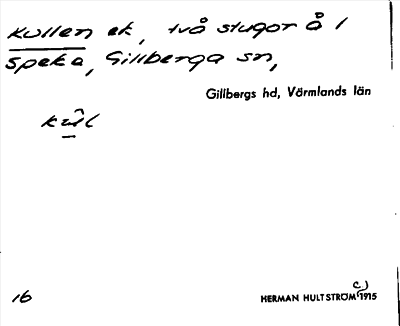 Kullen ek, två stugor å 1
Speka, Gillberga sn,
Gillbergs hd, Värmlands län
kul
16
HERMAN HULTSTRÖM c) 1915